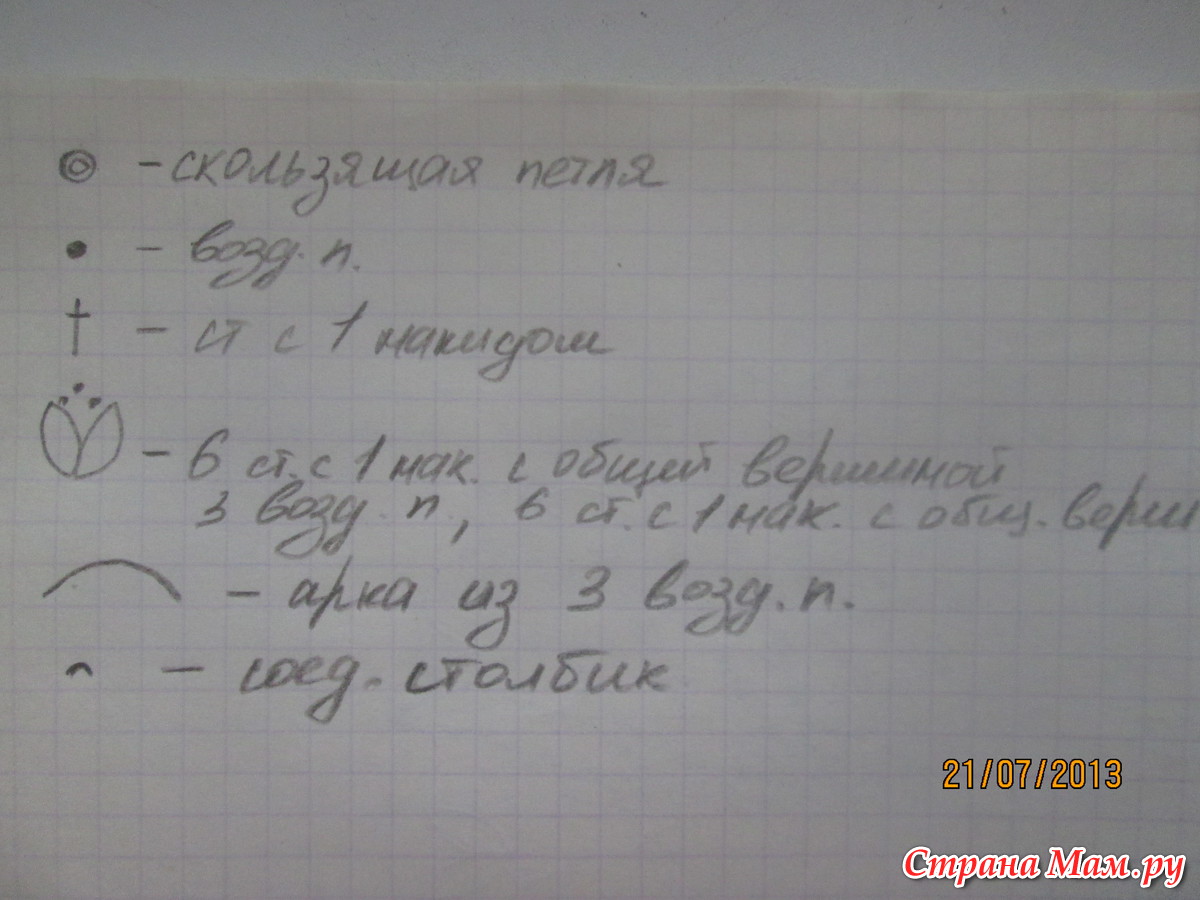 - скользящая петля
- возд. п.
- ст с 1 накидом
- 6 ст. с 1 нак. с общей вершиной
3 возд. п., 6 ст. с 1 нак. с общ. верш
- арка из 3 возд. п.
- соед. столбик
21/07/2013
Страна Мам.ру